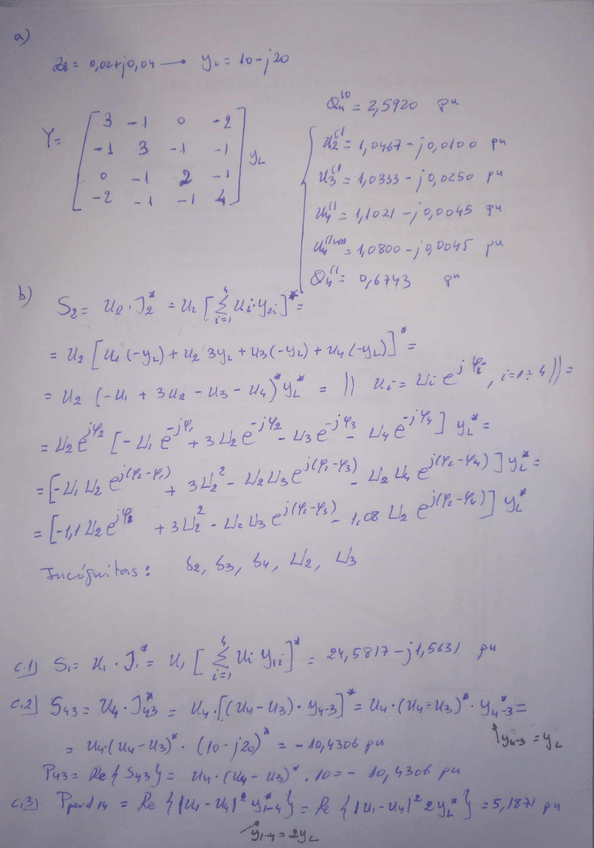 a)
Ze = 0,02+j0,04 → yL = 10-j20
Q4^(0 = 2,5920 pu
Y = [ 3 -1 0 -2
-1 3 -1 -1
0 -1 2 -1
-2 -1 -1 4 ] yL
U2^(1 = 1,0467 - j0,0100 pu
U3^(1 = 1,0333 - j0,0250 pu
U4^(1 = 1,1021 - j0,0045 pu
= 1,0800 - j0,0045 pu
Q4^(1 = 0,6743 pu
b)
S2 = U2 · I2* = U2 [ Σ_{i=1}^{4} Ui · y2i ]* =
= U2 [ U1 (-yL) + U2 3yL + U3 (-yL) + U4 (-yL) ]* =
= U2 (-U1 + 3U2 - U3 - U4)* yL* = || Ui = Ui e^{jφi}, i=1÷4 || =
= U2 e^{jφ2} [ -U1 e^{-jφ1} + 3U2 e^{-jφ2} - U3 e^{-jφ3} - U4 e^{-jφ4} ] yL* =
= [ -U1 U2 e^{j(φ2-φ1)} + 3U2² - U2 U3 e^{j(φ2-φ3)} - U2 U4 e^{j(φ2-φ4)} ] yL* =
= [ -1,1 U2 e^{jφ2} + 3U2² - U2 U3 e^{j(φ2-φ3)} - 1,08 U2 e^{j(φ2-φ4)} ] yL*
Incógnitas: δ2, δ3, δ4, U2, U3
c.1) S1 = U1 · I1* = U1 [ Σ_{i=1}^{4} Ui y1i ]* = 24,5817 - j1,5631 pu
c.2) S43 = U4 · I43* = U4 · [ (U4 - U3) · y4-3 ]* = U4 · (U4 - U3)* · y4-3* =
y4-3 = yL
= U4 · (U4 - U3)* · (10-j20)* = -10,4306 pu
P43 = Re{S43} = U4 · (U4 - U3)* · 10 = -10,4306 pu
c.3) Pperd14 = Re{|U1 - U4|² y1-4*} = Re{|U1 - U4|² 2yL*} = 5,1871 pu
y1-4 = 2yL